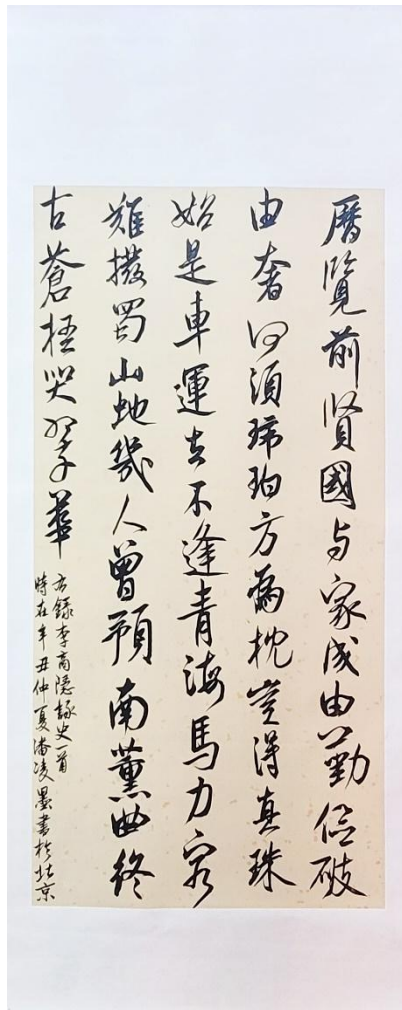 曆覽前賢國与家成由勤儉破
由奢何須琥珀方為枕豈得真珠
始是車運去不逢青海馬力窮
難撥蜀山虵幾人曾預南薰曲終
古蒼梧哭翠華
右錄李商隱詠史一首
時在辛丑仲夏潘凌墨書於北京